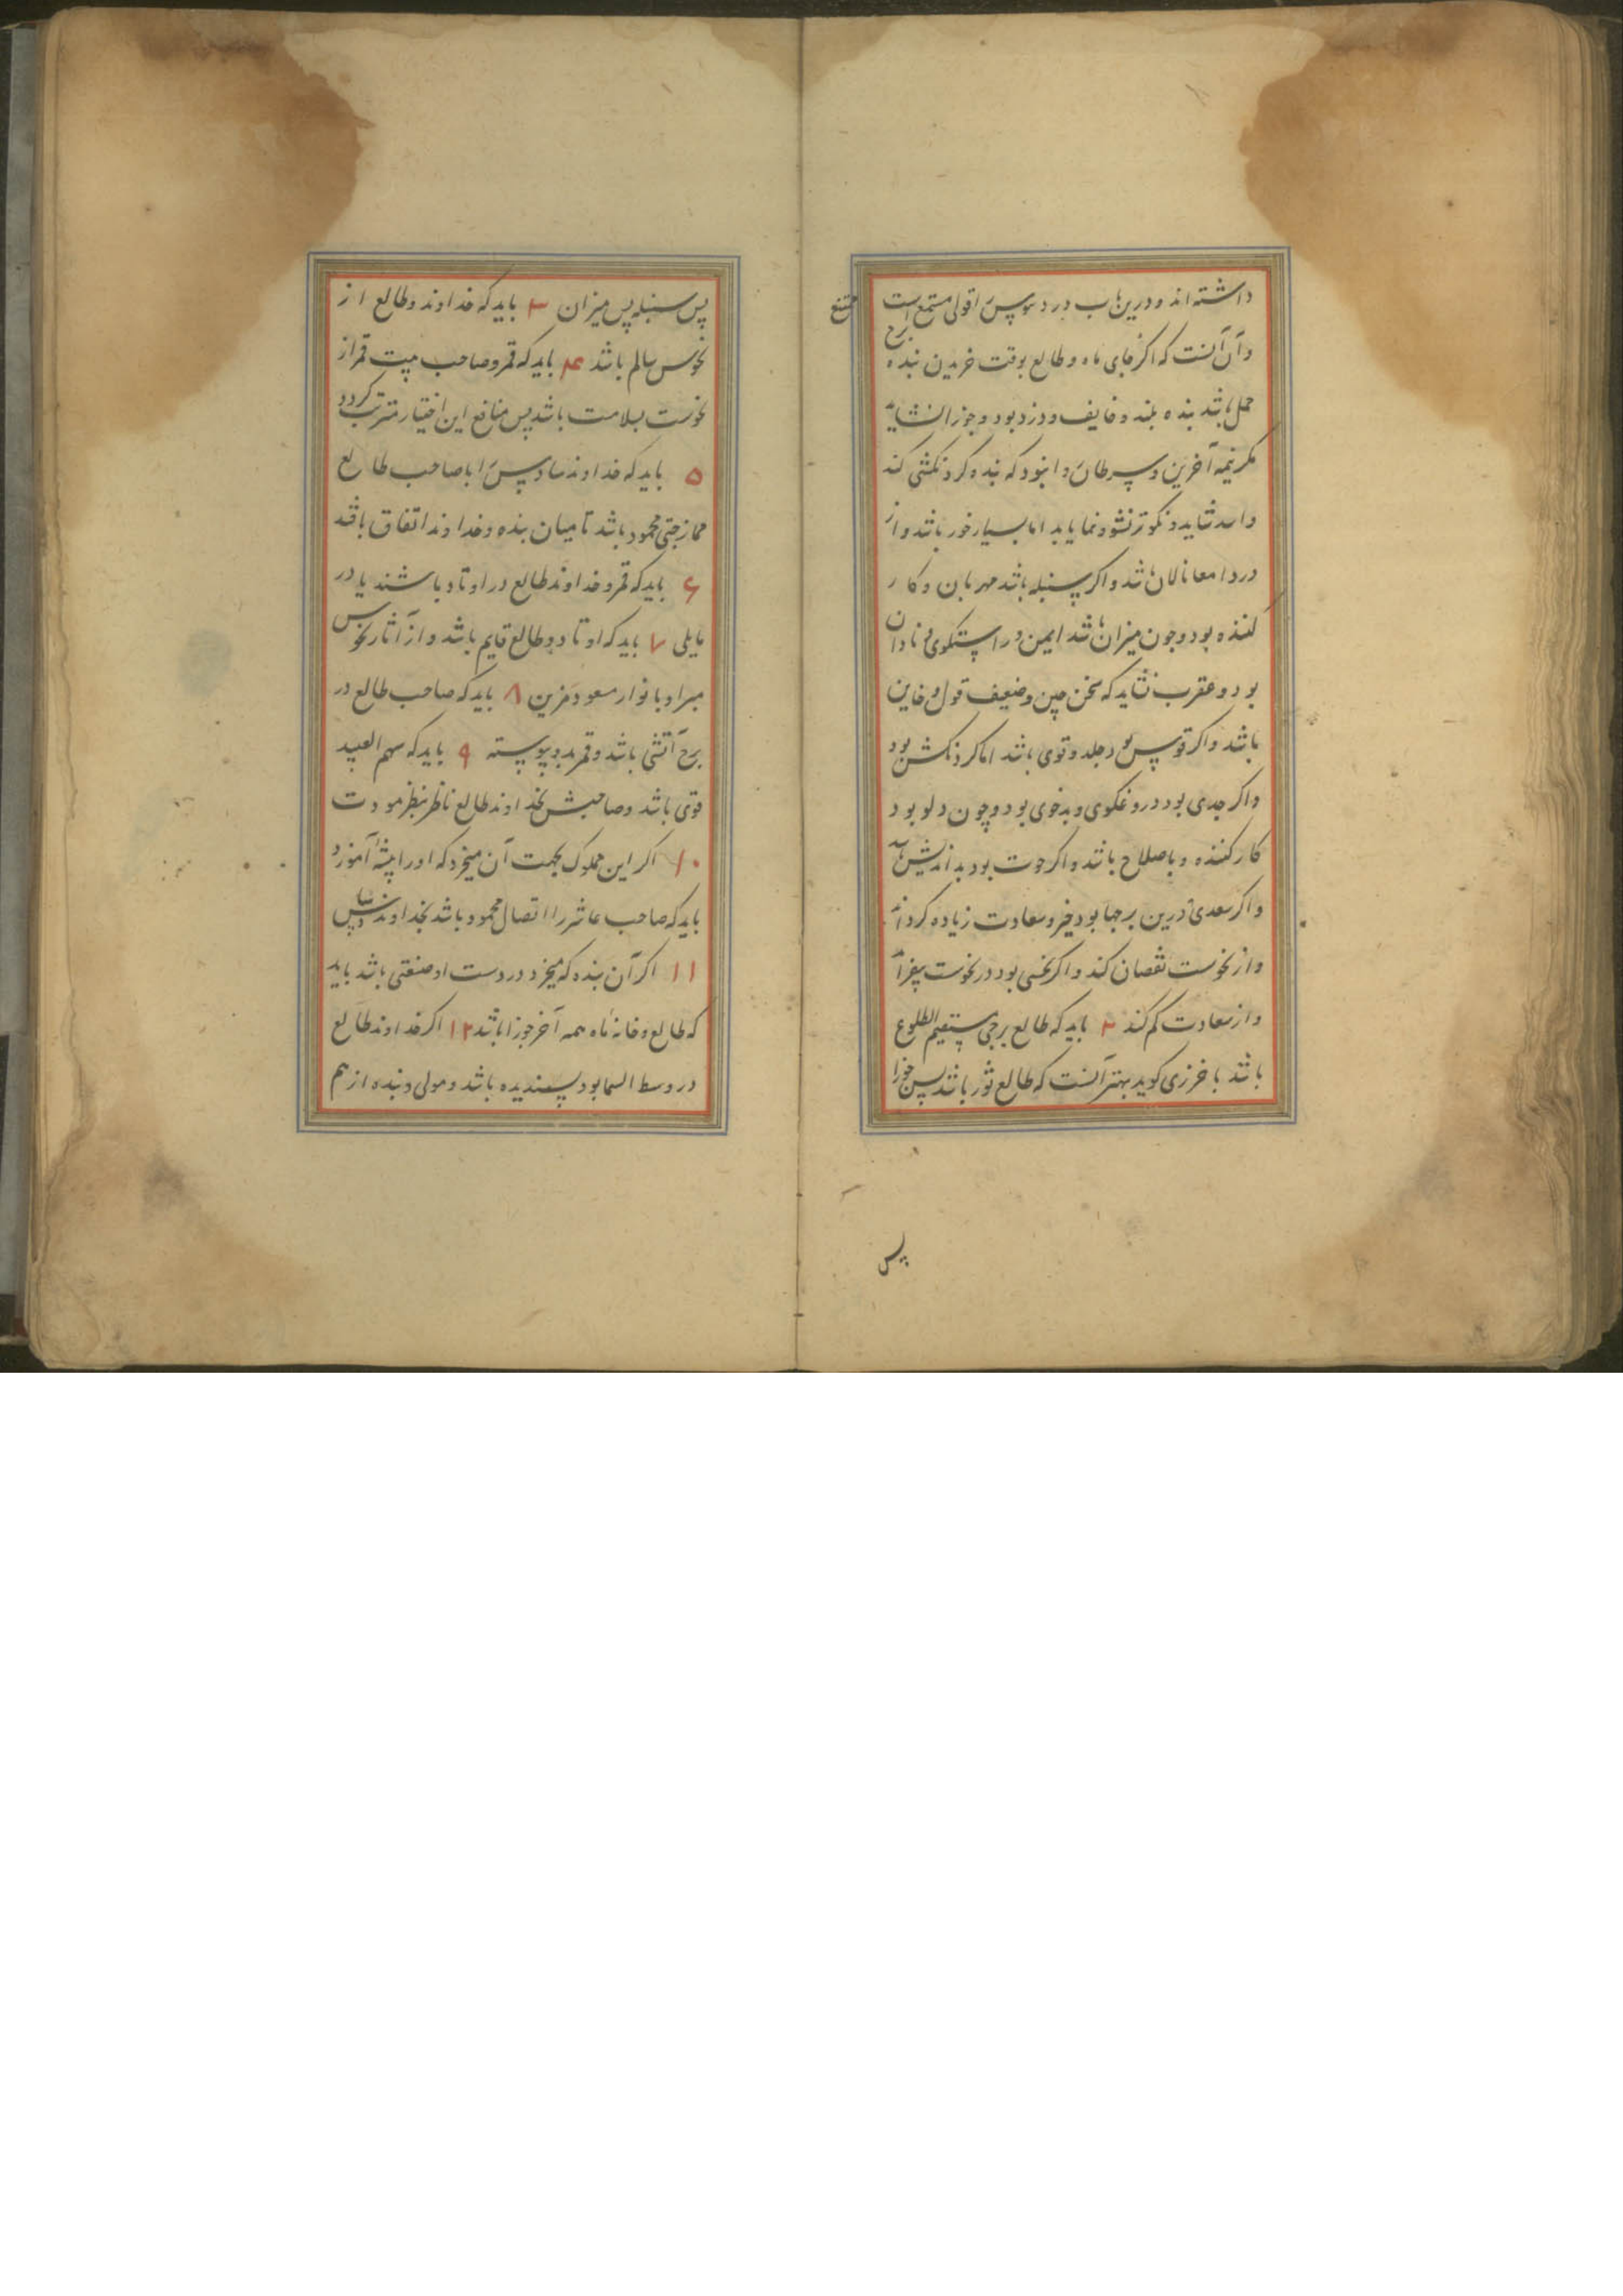 داشته اند و درین باب دردسوپس را قولی مستمع است
ممتنع
و آن آنست که اگر جای ماه و طالع بوقت خریدن بنده برج
حمل باشد بنده بلند و خایف و دزد بود و جوزا نشاید
مگر نیمه آخرین و سرطان روا نبود که بنده گردنکشی کند
و اسد شاید و نکوتر نشو و نما یابد اما بسیار خور باشد و از
درد امعا نالان باشد و اگر سنبله باشد مهربان و کار
کننده بود و چون میزان باشد ایمن و راستگوی و نادان
بود و عقرب نشاید که سخن چین و ضعیف قول و خاین
باشد و اگر قوس بود جلد و قوی باشد اما گردنکش بود
و اگر جدی بود دروغگوی و بدخوی بود و چون دلو بود
کار کننده و باصلاح باشد و اگر حوت بود بد اندیش باشد
و اگر سعدی درین برجها بود خیر و سعادت زیاده گرداند
و از نحوست نقصان کند و اگر نحسی بود در نحوست بیفزاید
و از سعادت کم کند ۲ باید که طالع برجی مستقیم الطلوع
باشد باخرزی گوید بهتر آنست که طالع ثور باشد پس جوزا
پس
پس سنبله پس میزان ۳ باید که خداوند و طالع از
نحوس سالم باشد ۴ باید که قمر و صاحب بیت قمر از
نحوست بسلامت باشد پس منافع این اختیار مترتب گردد
۵ باید که خداوند سادس را با صاحب طالع
ممازجتی محمود باشد تا میان بنده و خداوند اتفاق باشد
۶ باید که قمر و خداوند طالع در اوتاد باشند یا در
مایلی ۷ باید که اوتاد و طالع قایم باشد و از آثار نحوس
مبرا و بانوار سعود مزین ۸ باید که صاحب طالع در
برج آتشی باشد و قمر بدو پیوسته ۹ باید که سهم العبید
قوی باشد و صاحبش بخداوند طالع ناظر بنظر مودت
۱۰ اگر این مملوک بجهت آن میخرد که او را پیشۀ آموزد
باید که صاحب عاشر را اتصال محمود باشد بخداوند سادس
۱۱ اگر آن بنده که میخرد در دست او صنعتی باشد باید
که طالع و خانۀ ماه همه آخر جوزا باشد ۱۲ اگر خداوند طالع
در وسط السما بود پسندیده باشد و مولی و بنده از هم